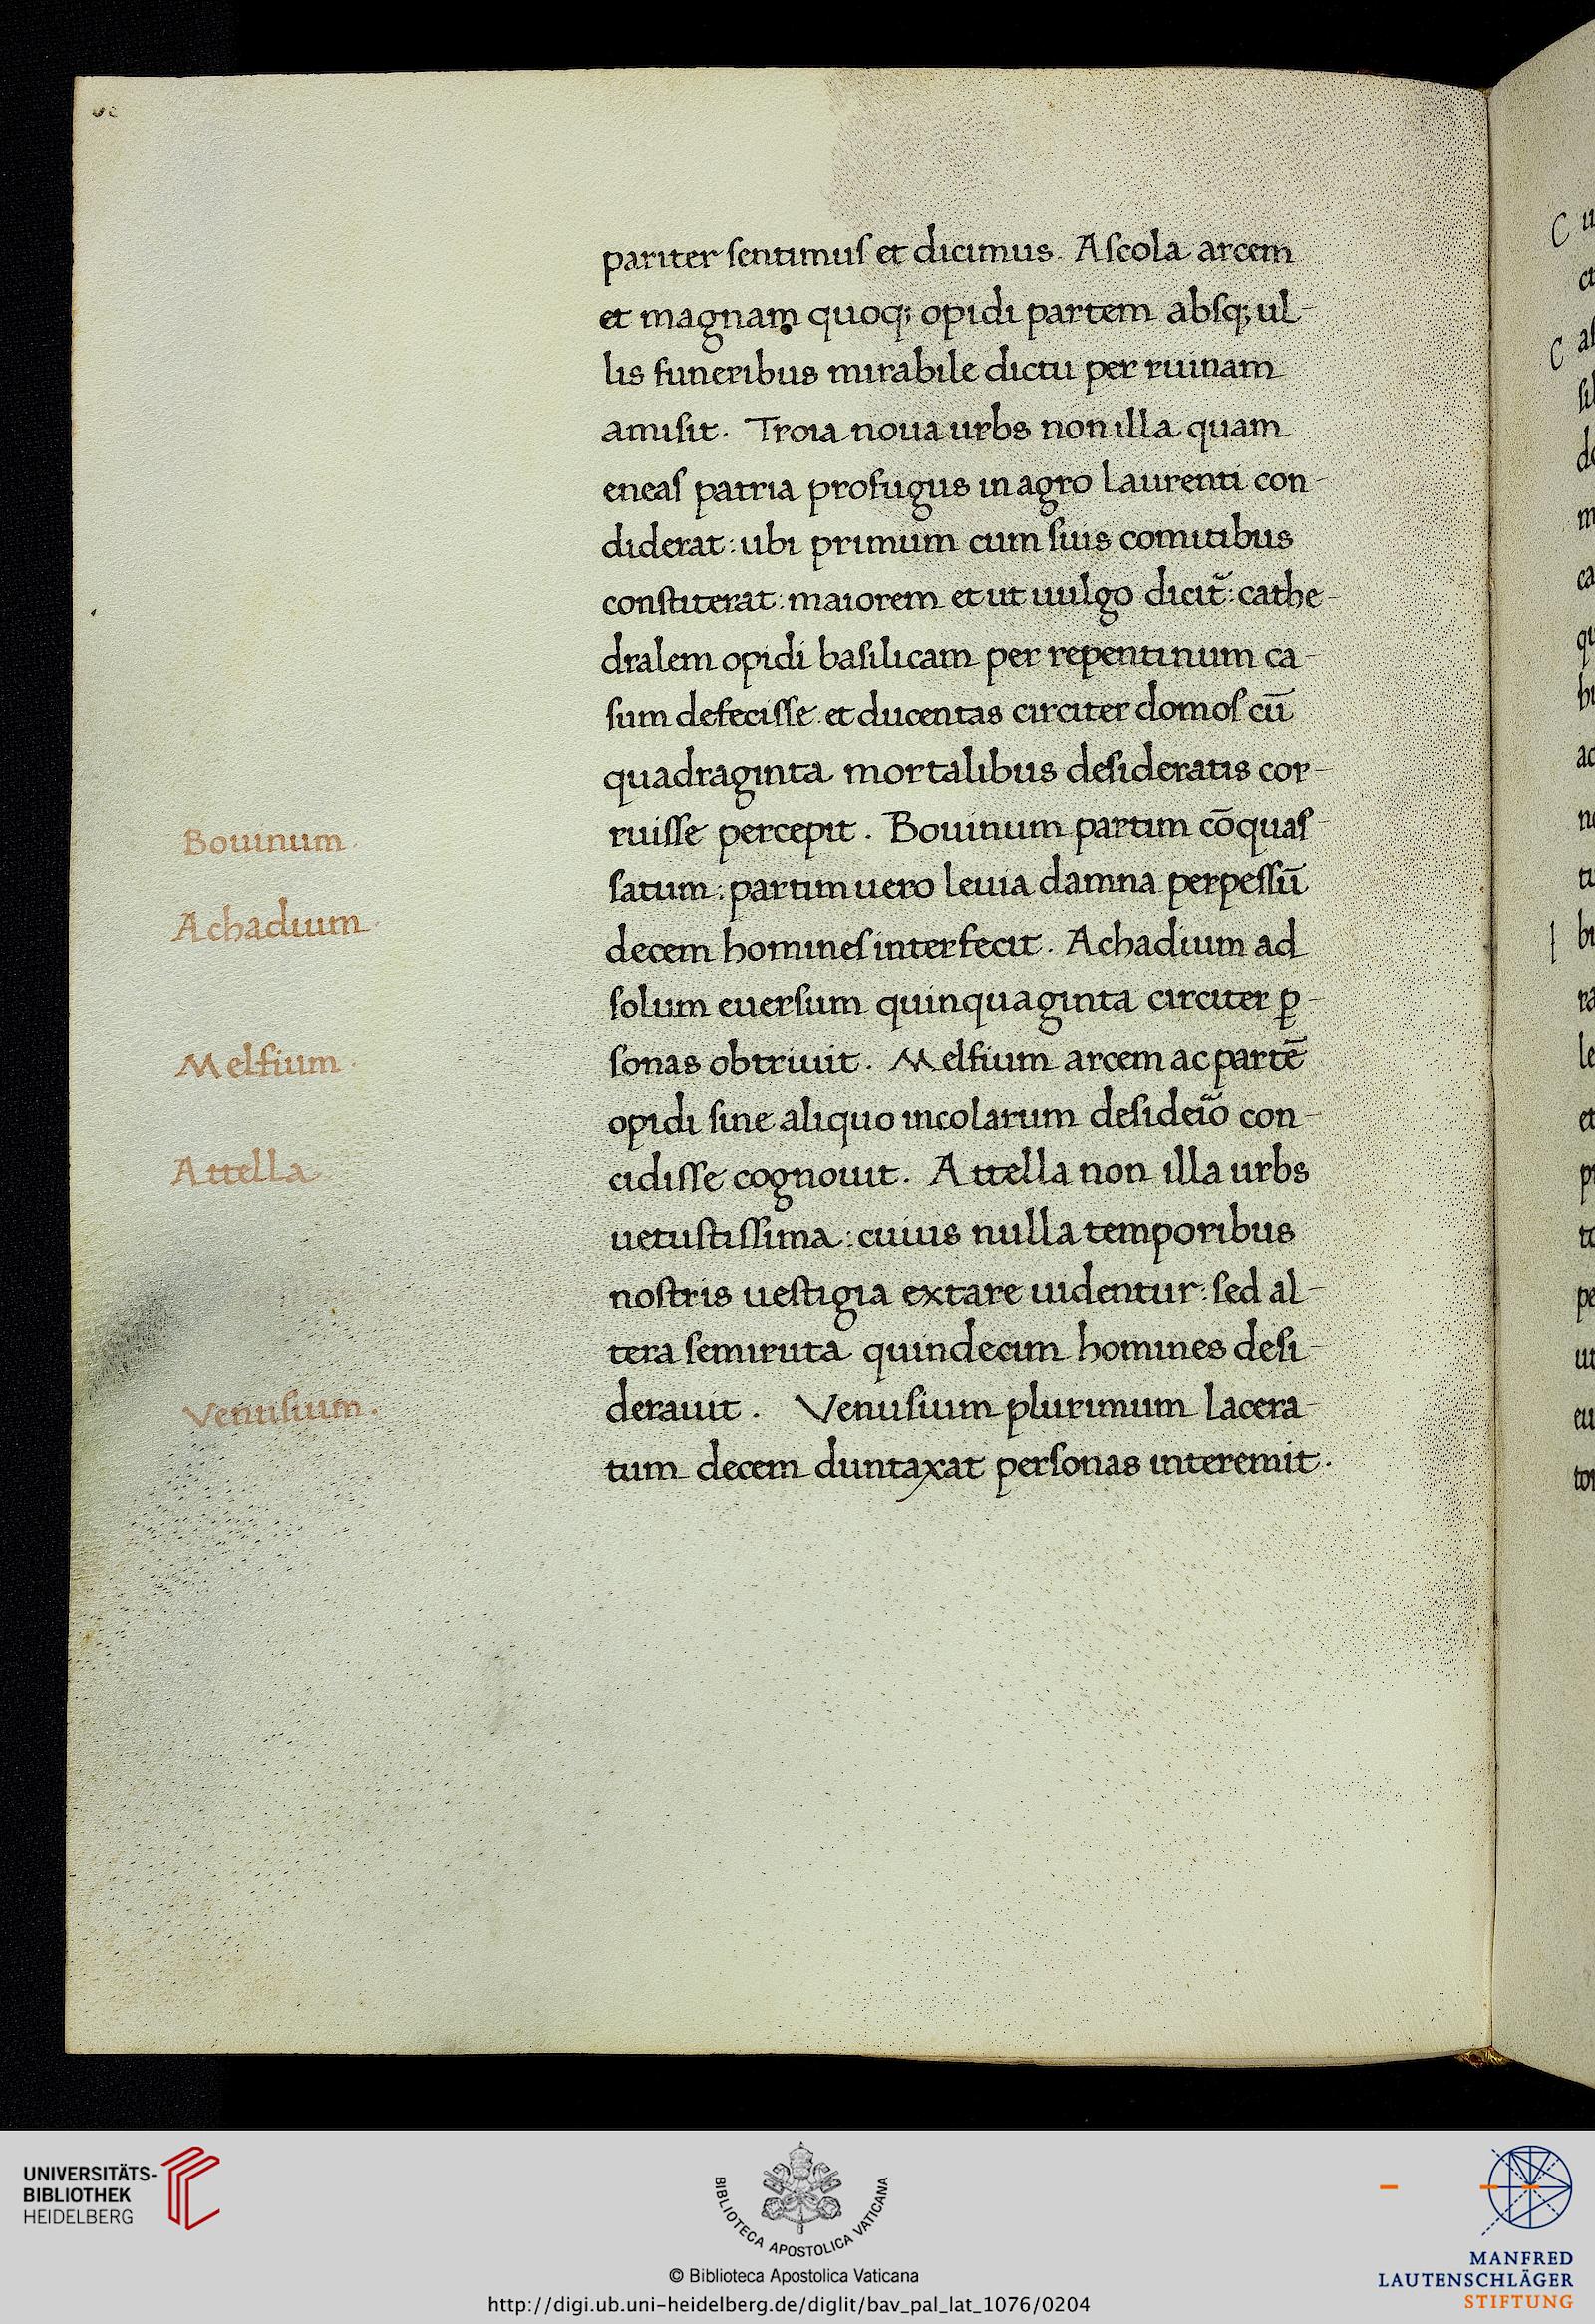 pariter sentimus et dicimus. Ascola arcem
et magnam quoq; opidi partem absq; ul-
lis funeribus mirabile dictu per ruinam
amisit. Troia noua urbs non illa quam
eneas patria profugus in agro Laurenti con-
diderat: ubi primum cum suis comitibus
constiterat: maiorem et ut uulgo dicit᷑: cathe-
dralem opidi basilicam per repentinum ca-
sum defecisse et ducentas circiter domos cū
quadraginta mortalibus desideratis cor-
ruisse percepit. Bouinum partim cōquas-
satum: partim uero leuia damna perpessū
decem homines interfecit. Achadium ad
solum euersum quinquaginta circiter ꝑ-
sonas obtriuit. Melfium arcem ac partē
opidi sine aliquo incolarum desideīo con-
cidisse cognouit. Attella non illa urbs
uetustissima: cuius nulla temporibus
nostris uestigia extare uidentur: sed al-
tera semiruta quindecim homines desi-
derauit. Venusium plurimum lacera-
tum decem duntaxat personas interemit.
Bouinum.
Achadium.
Melfium.
Attella
Venusium.
UNIVERSITÄTS-
BIBLIOTHEK
HEIDELBERG
BIBLIOTECA APOSTOLICA VATICANA
© Biblioteca Apostolica Vaticana
http://digi.ub.uni-heidelberg.de/diglit/bav_pal_lat_1076/0204
MANFRED
LAUTENSCHLÄGER
STIFTUNG